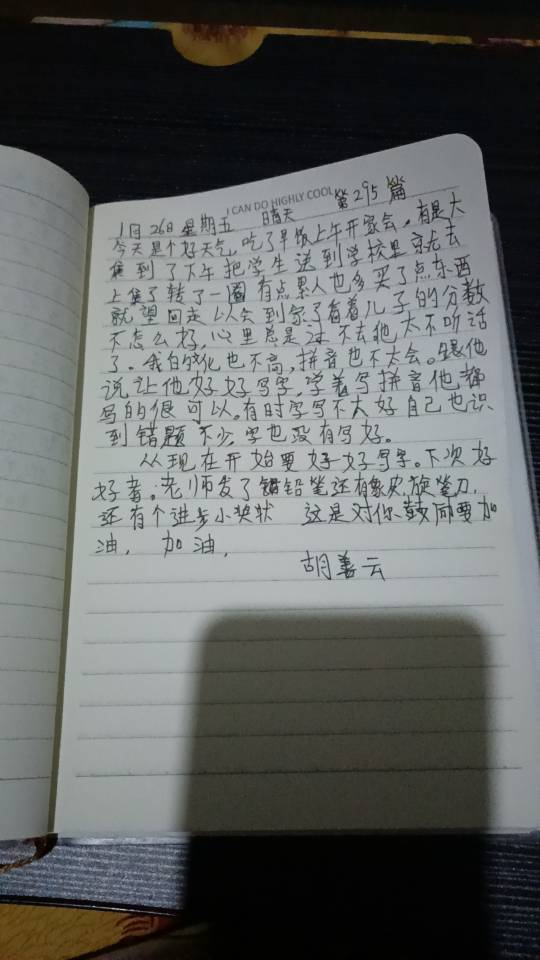 I CAN DO HIGHLY COOL
1月26日星期五 晴天 第295篇
今天是个好天气，吃了早饭上午开家会。有是大
集到了下午把学生送到学校里就去
上集了转了一圈有点累人也多买了点东西
就望回走以会到家了看着儿子的分数
不怎么好，心里总是过不去他太不听话
了。我自文化也不高，拼音也不大会。跟他
说让他好好写字，学着写拼音他都
写的很可以。有时字写不大好自己也识
到错题不少，字也没有写好。
从现在开始要好好写字。下次好
好考。老师发了铅笔还有象皮，旋笔刀，
还有个进步小奖状 这是对你鼓励要加
油， 加油，
胡善云